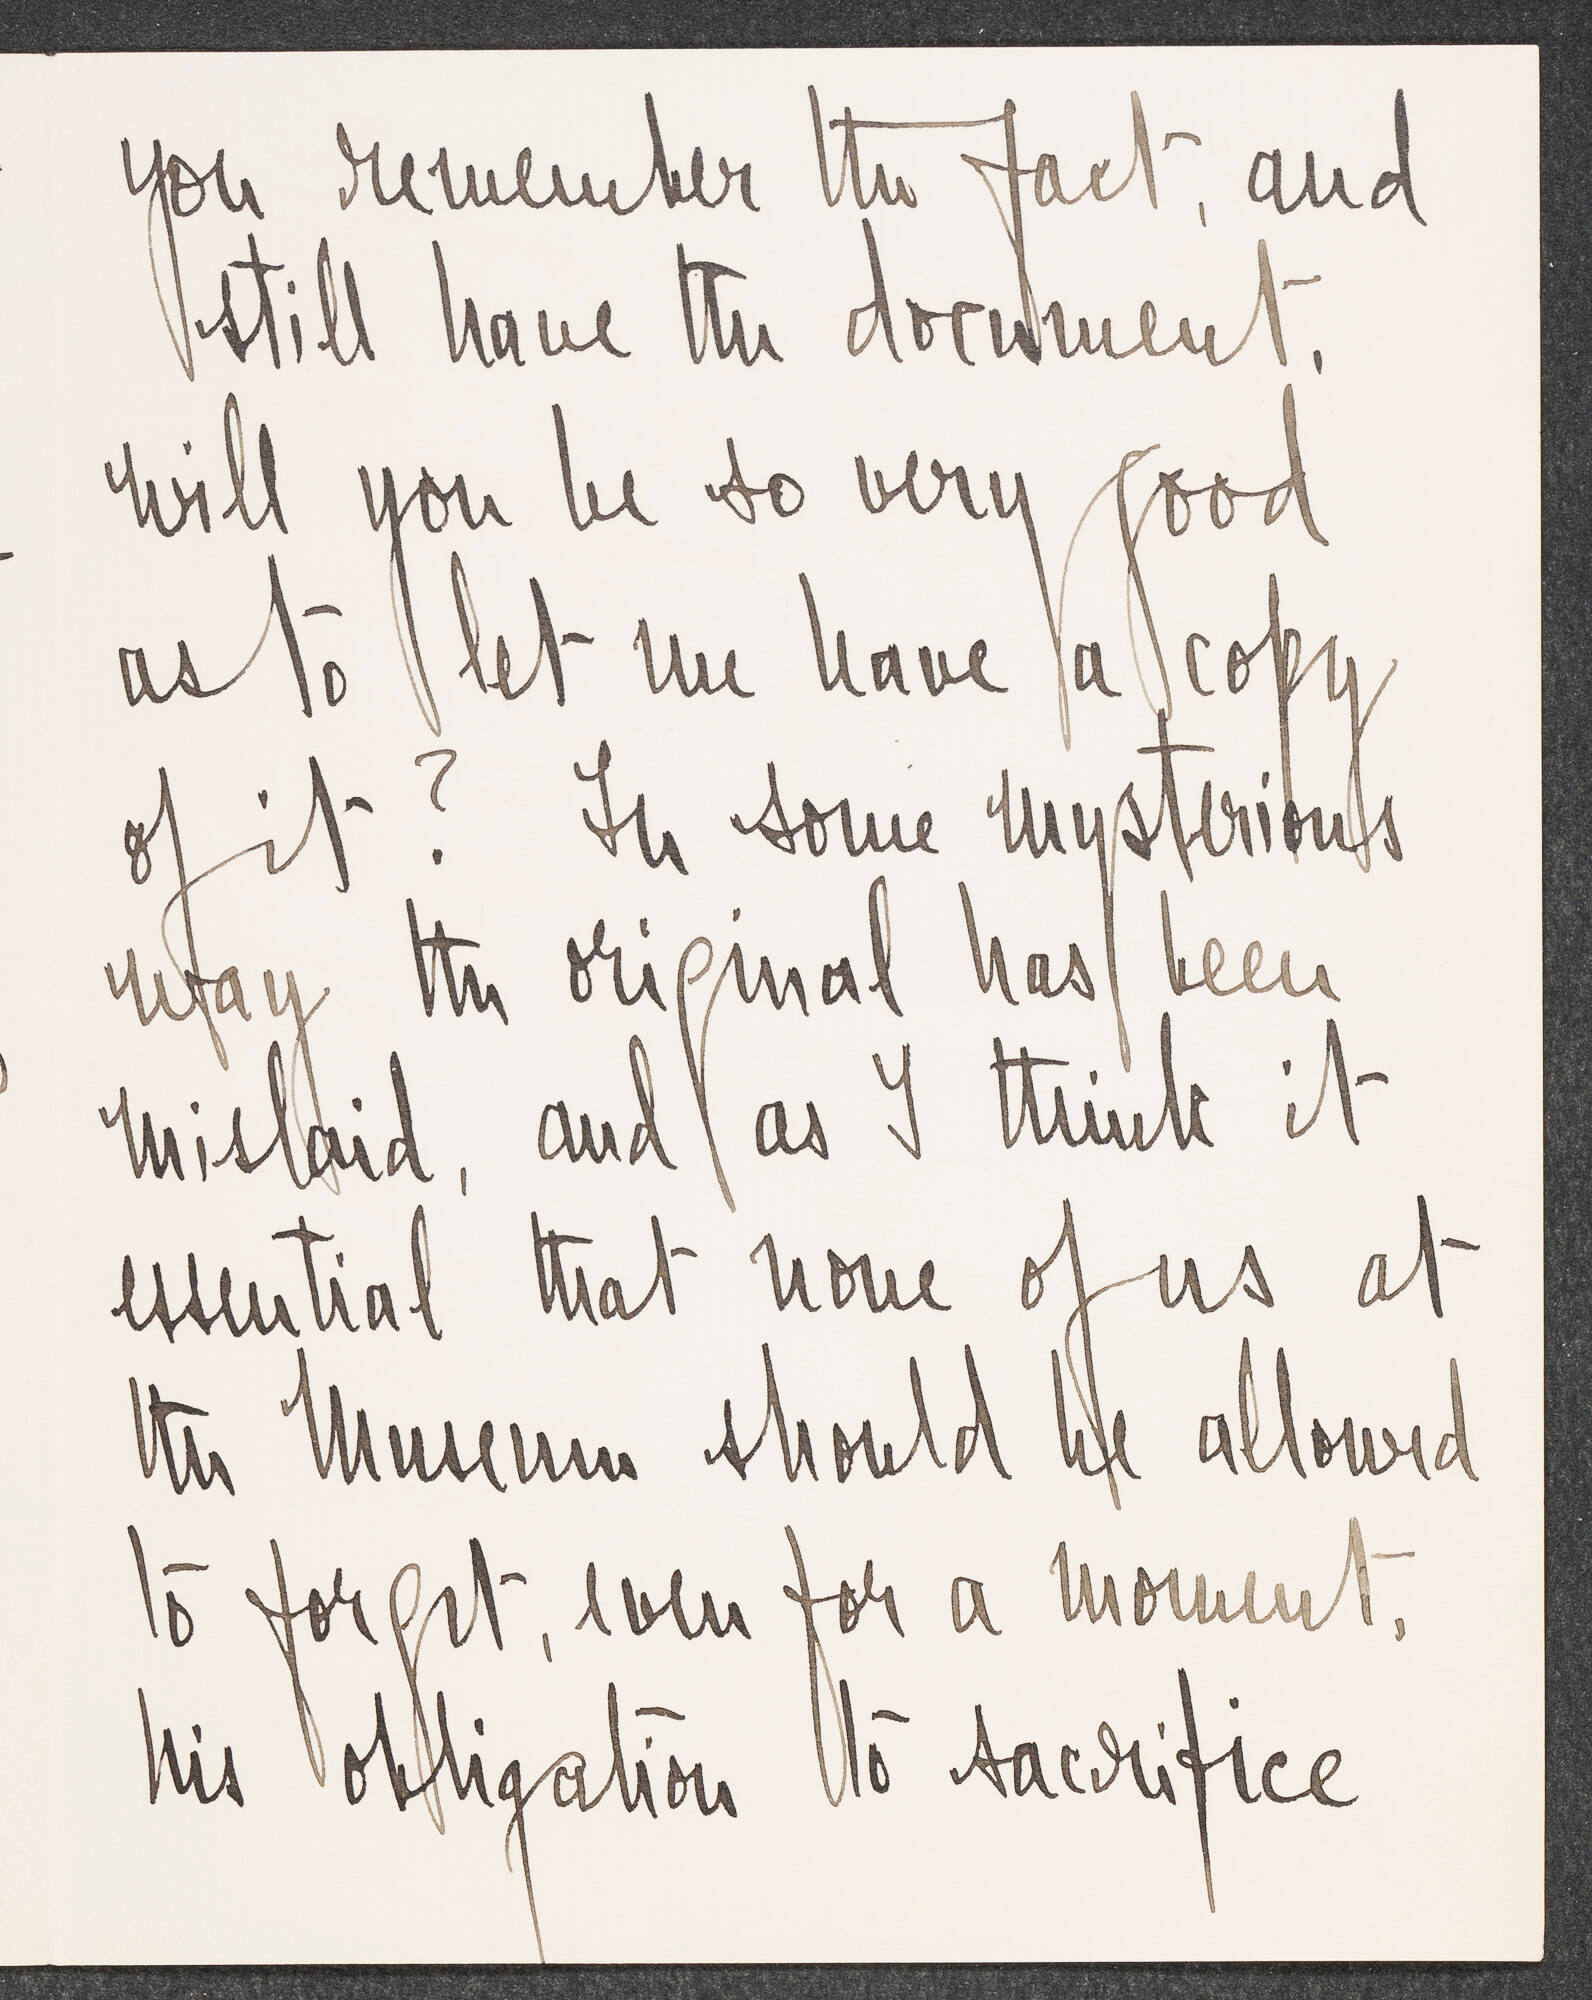 you remember the fact, and
still have the document,
will you be so very good
as to let me have a copy
of it? In some mysterious
way the original has been
mislaid, and as I think it
essential that none of us at
the Museum should be allowed
to forget, even for a moment,
his obligation to sacrifice